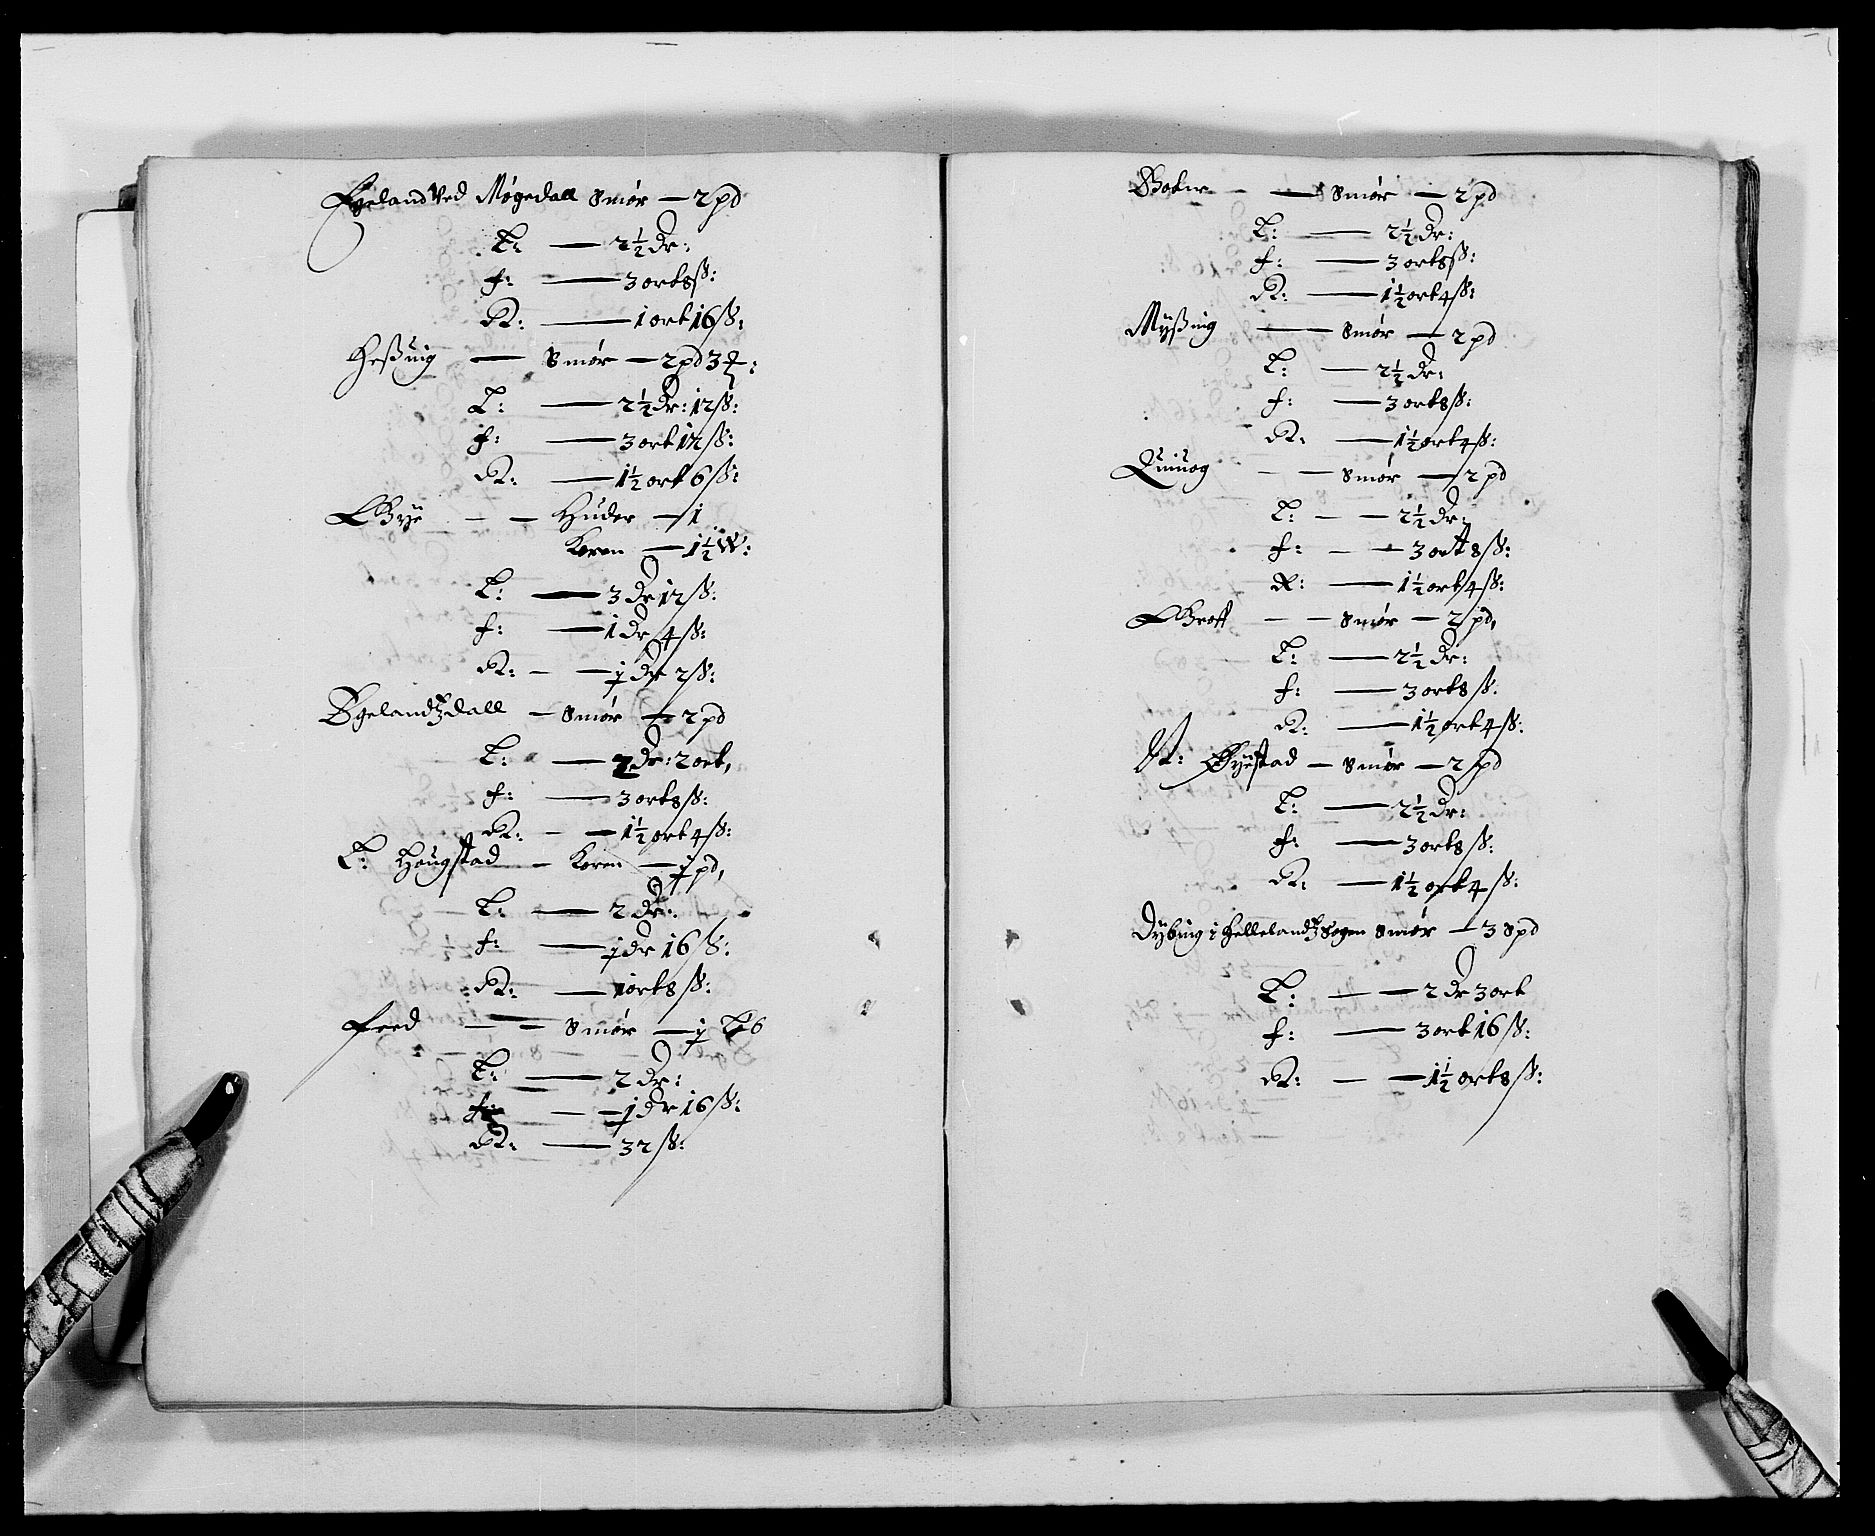 Egeland ved Møgedall Smør — 2 pd
L: — 2½ Dr:
f: — 3 ort 8 ß:
R: — 1 ort 16 ß:
Heßuig — Smør — 2 pd 3
L: — 2½ Dr: 12 ß:
f: — 3 ort 12 ß:
R: — 1½ ort 6 ß:
Bye — — Huder — 1
Koren — 1½ W:
L: — 3 Dr 12 ß:
f: — 1 Dr 4 ß:
R: — — j Dr 2 ß:
Egelandtzdall — Smør — 2 pd
L: — 2 Dr: 2 ort,
f: — 3 ort 8 ß:
R: — — 1½ ort 4 ß:
L: Haugstad — Koren — j pd,
L: — 2 Dr:
f: — j Dr 16 ß:
R: — 1 ort 8 ß:
Feed — — Smør — j
L: — 2 Dr:
f: — — j Dr 16 ß:
R: — 32 ß:
— — Smør — 2 pd
L: — 2½ Dr:
f: — 3 ort 8 ß:
R: — 1½ ort 4 ß:
Myßing — Smør — 2 pd
L: — 2½ Dr:
f: — 3 ort 8 ß:
R: — 1½ ort 4 ß:
Quiuog — — Smør — 2 pd
L: — — 2½ Dr:
f: — — 3 ort 8 ß:
R: — 1½ ort 4 ß:
— — Smør — 2 pd,
L: — 2½ Dr:
f: — 3 ort 8 ß:
R: — 1½ ort 4 ß:
N: Øyestad — Smør — 2 pd
L: — 2½ Dr:
f: — 3 ort 8 ß:
R: — 1½ ort 4 ß:
Dybing i Hellelandtz Sogen Smør — 3 Spd
L: — — 2 Dr 3 ort
f: — 3 ort 16 ß:
R: — — 1½ ort 8 ß: